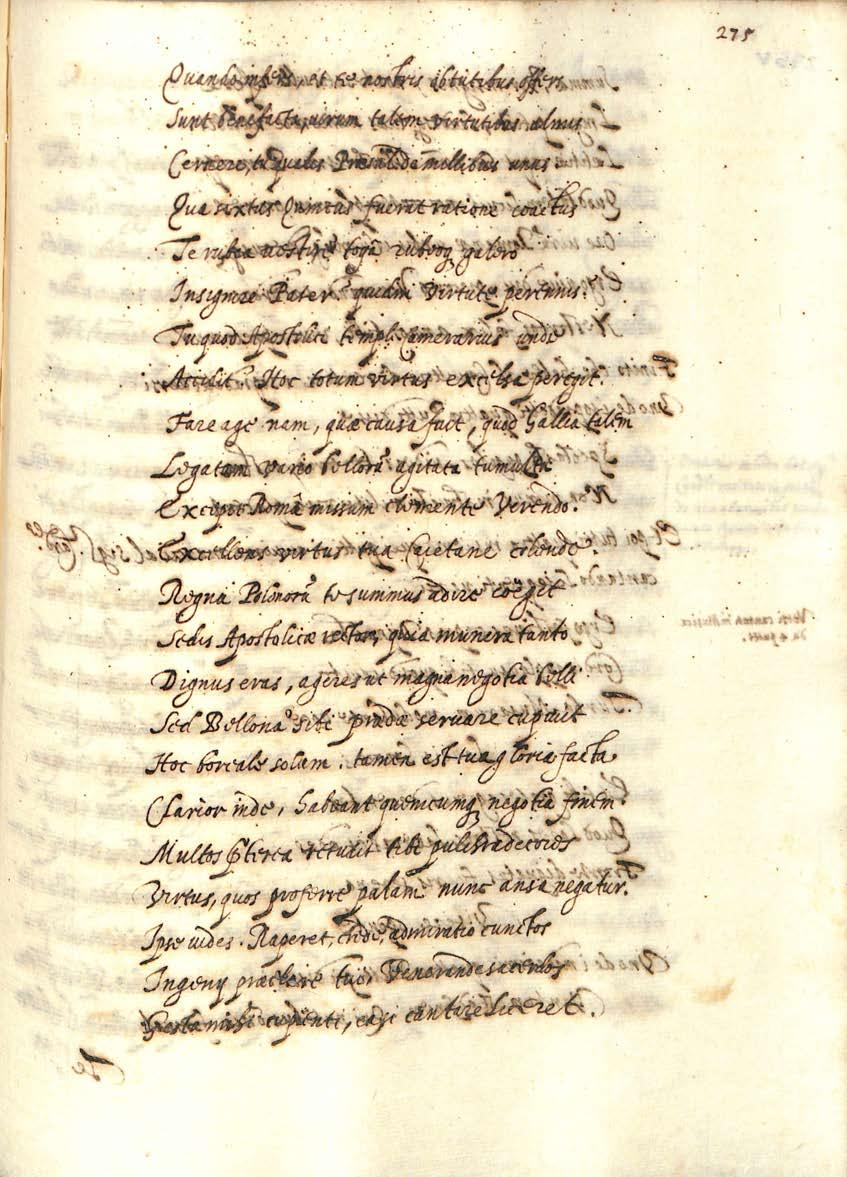 275
Quando infers, et te nostris obtutibus offers
Sunt benefacta, virum talem virtutibus almus
Cernere, tu qualis Præsul de millibus unus
Qua sixtus Quintus fuerat ratione coactus
Te rubea vestire togâ rubeoq galero
Insignire Pater? quidni virtute perennis?
Tu quod Apostolici templi Camerarius unde
Accidit? Hoc totum virtus excelsa peregit.
Fare age nam, quæ causa fuit, quod Gallia talem
Legatum vario bellorũ agitata tumultu
Excipit Româ missum clemente Verendo?
Excellens virtus tua Caietane colende.
Regna Polonorũ te summus adire coëgit
Sedis Apostolicæ rector, quia munera tanto
Dignus eras, ageres ut magna negotia belli
Sed Bellona sibi prædæ servare cupivit
Hoc boreale solum. tamen est tua gloria facta
Clarior inde, habeant quemcumq negotia finem.
Multos pterea retulit tibi pulchra decores
Virtus, quos proferre palam nunc ansa negatur.
Ipse vides. Raperet, crede, admiratio cunctos
Ingenij præclare tui, Venerande sacerdos
Gesta mihi cupienti, easi cantare liceret.